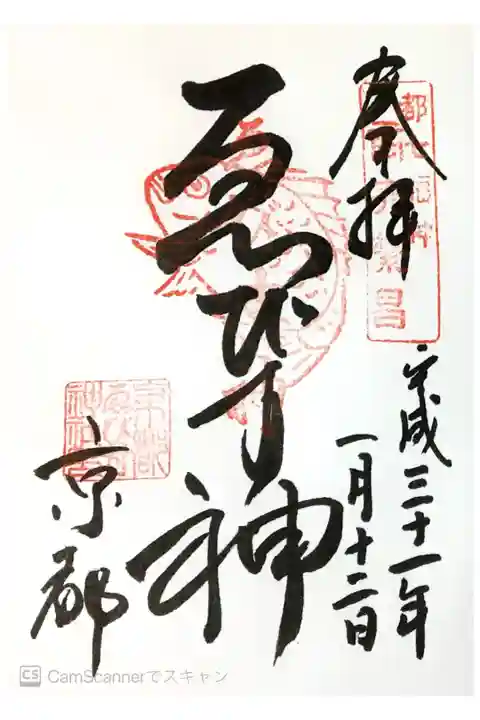 奉拝
平成三十一年
一月十二日
ゑびす神
京都
CS CamScannerでスキャン